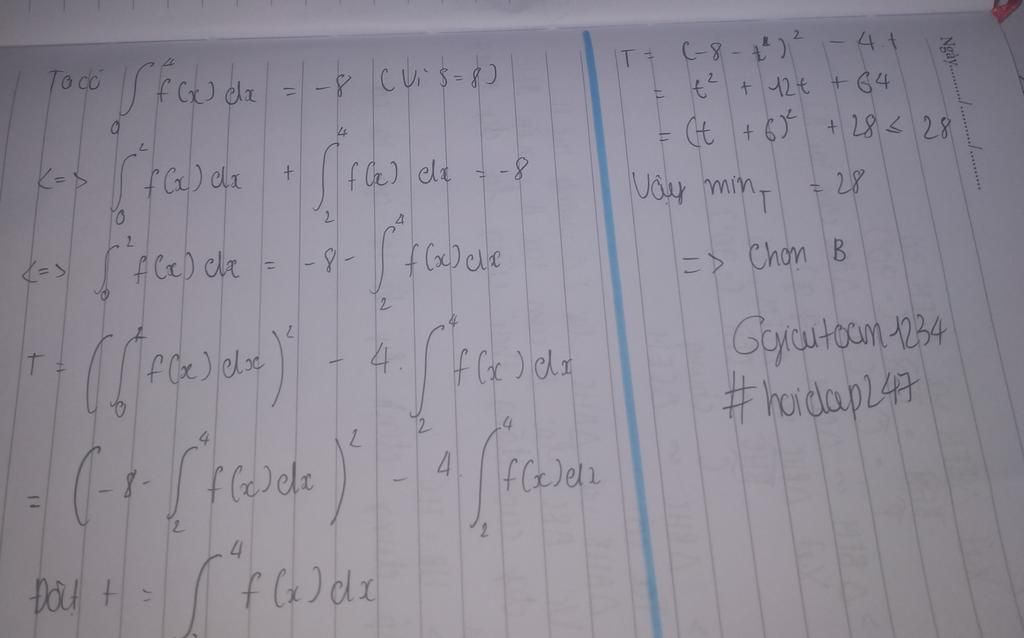 Ta có ∫₀⁴ f(x) dx = -8 (Vì S = 8)
<=> ∫₀² f(x) dx + ∫₂⁴ f(x) dx = -8
<=> ∫₀² f(x) dx = -8 - ∫₂⁴ f(x) dx
T = (∫₀² f(x) dx)² - 4. ∫₂⁴ f(x) dx
= (-8 - ∫₂⁴ f(x) dx)² - 4. ∫₂⁴ f(x) dx
Đặt t = ∫₂⁴ f(x) dx
Ngày......../......../........
T = (-8 - t)² - 4.t
= t² + 12t + 64
= (t + 6)² + 28 ≤ 28
Vậy min T = 28
=> Chọn B
Ggicutoam1234
#hoidap247